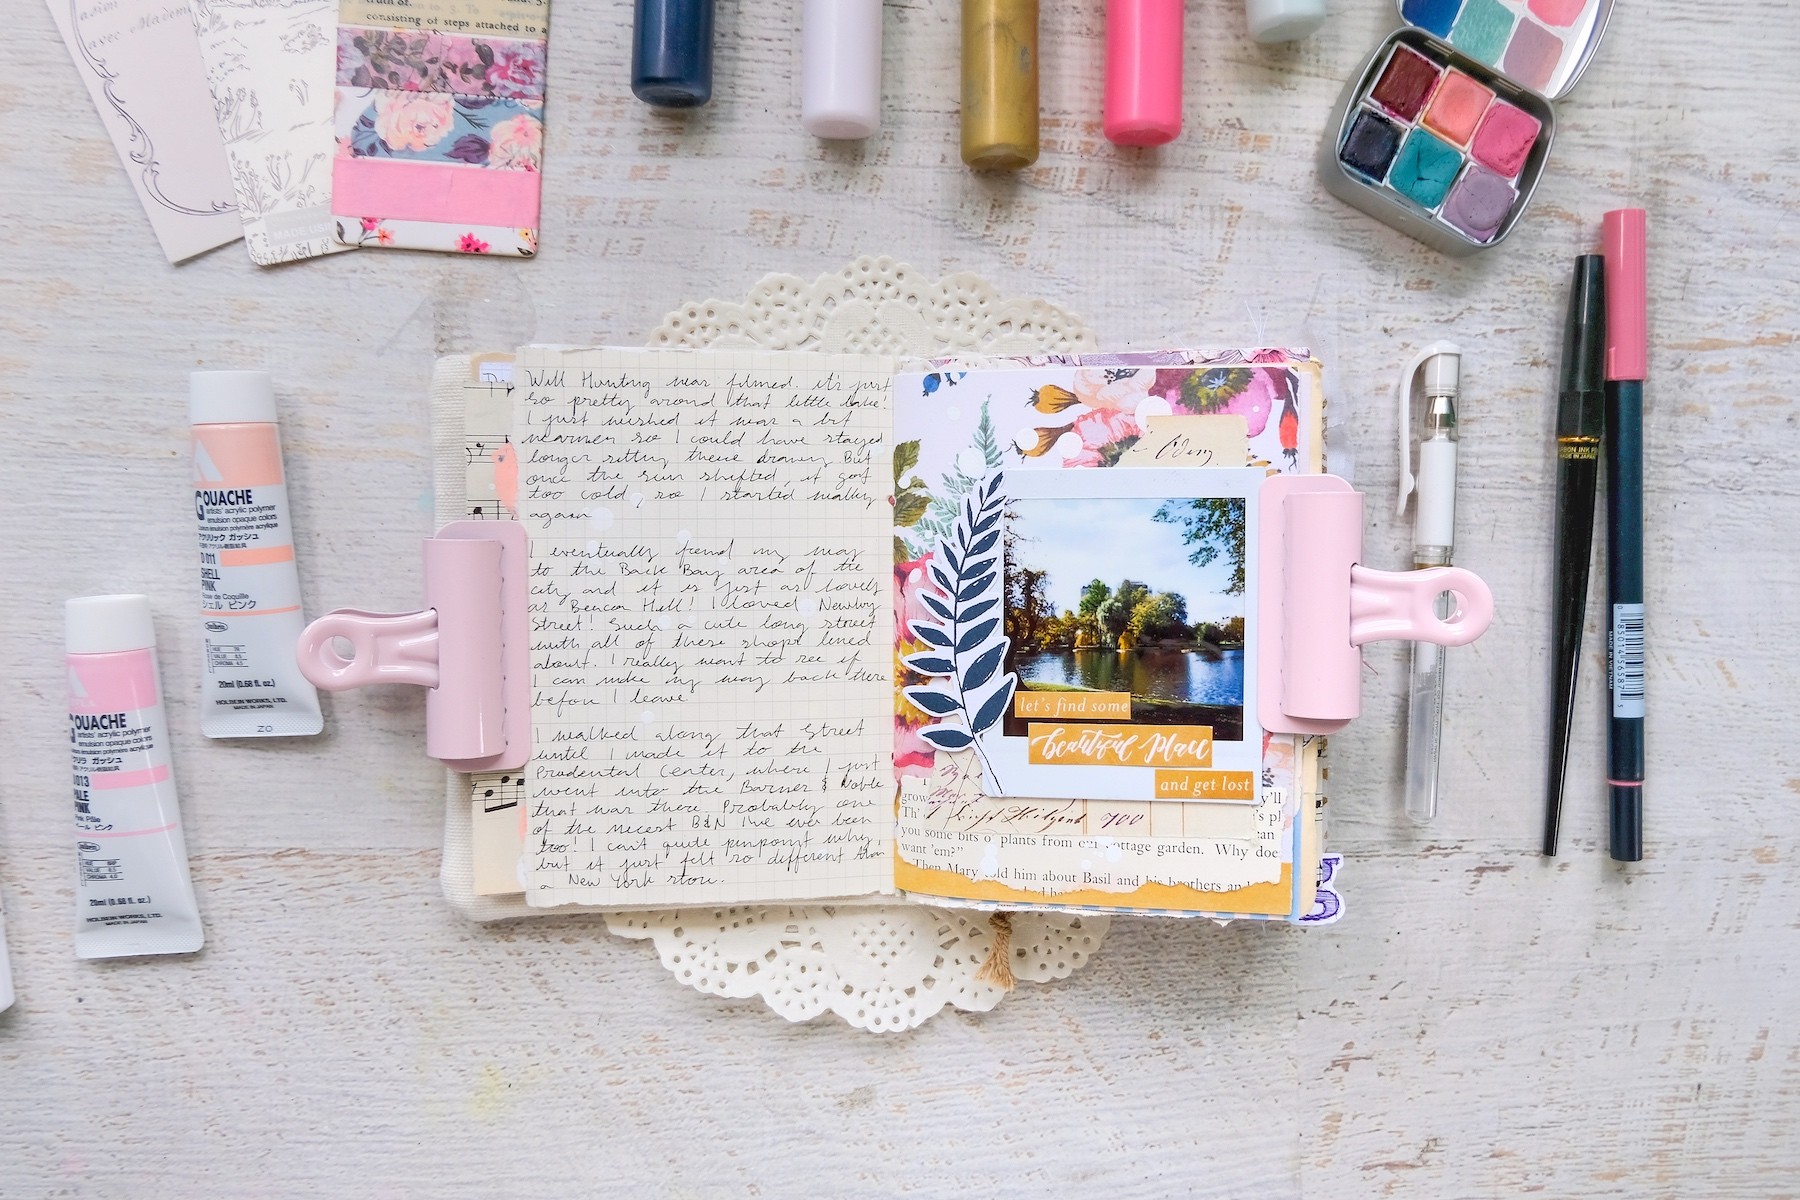 truth of.
consisting of steps attached to a
avec Madem
MADE
Will Hunting was filmed. It's just
so pretty around that little lake!
I just wished it was a bit
warmer so I could have stayed
longer sitting there drawing. But
once the sun shifted, it got
too cold, so I started walking
again.
I eventually found my way
to the Back Bay area of the
city and it is just as lovely
as Beacon Hill! I loved Newbury
Street! Such a cute long street
with all of these shops lined
about. I really want to see if
I can make my way back there
before I leave.
I walked along that street
until I made it to the
Prudential Center, where I just
went into the Barnes & Noble
that was there. Probably one
of the nicest B&N I've ever been
too! I can't quite pinpoint why,
but it just felt so different than
a New York store.
let's find some
beautiful place
and get lost
700
grow
you some bits of plants from our cottage garden. Why doe
want 'em?"
Then Mary told him about Basil and his brothers and
GOUACHE
artists' acrylic polymer
emulsion opaque colors
アクリリック ガッシュ
D 011
SHELL
PINK
Rose de Coquille
シェル ピンク
HUE
VALUE
CHROMA
20ml (0.68 fl. oz.)
HOLBEIN WORKS, LTD.
MADE IN JAPAN
ZO
GOUACHE
artists' acrylic polymer
emulsion opaque colors
D013
PALE
PINK
ペール ピンク
HUE
VALUE
CHROMA
20ml (0.68 fl. oz.)
HOLBEIN WORKS, LTD.
MADE IN JAPAN
MADE IN JAPAN